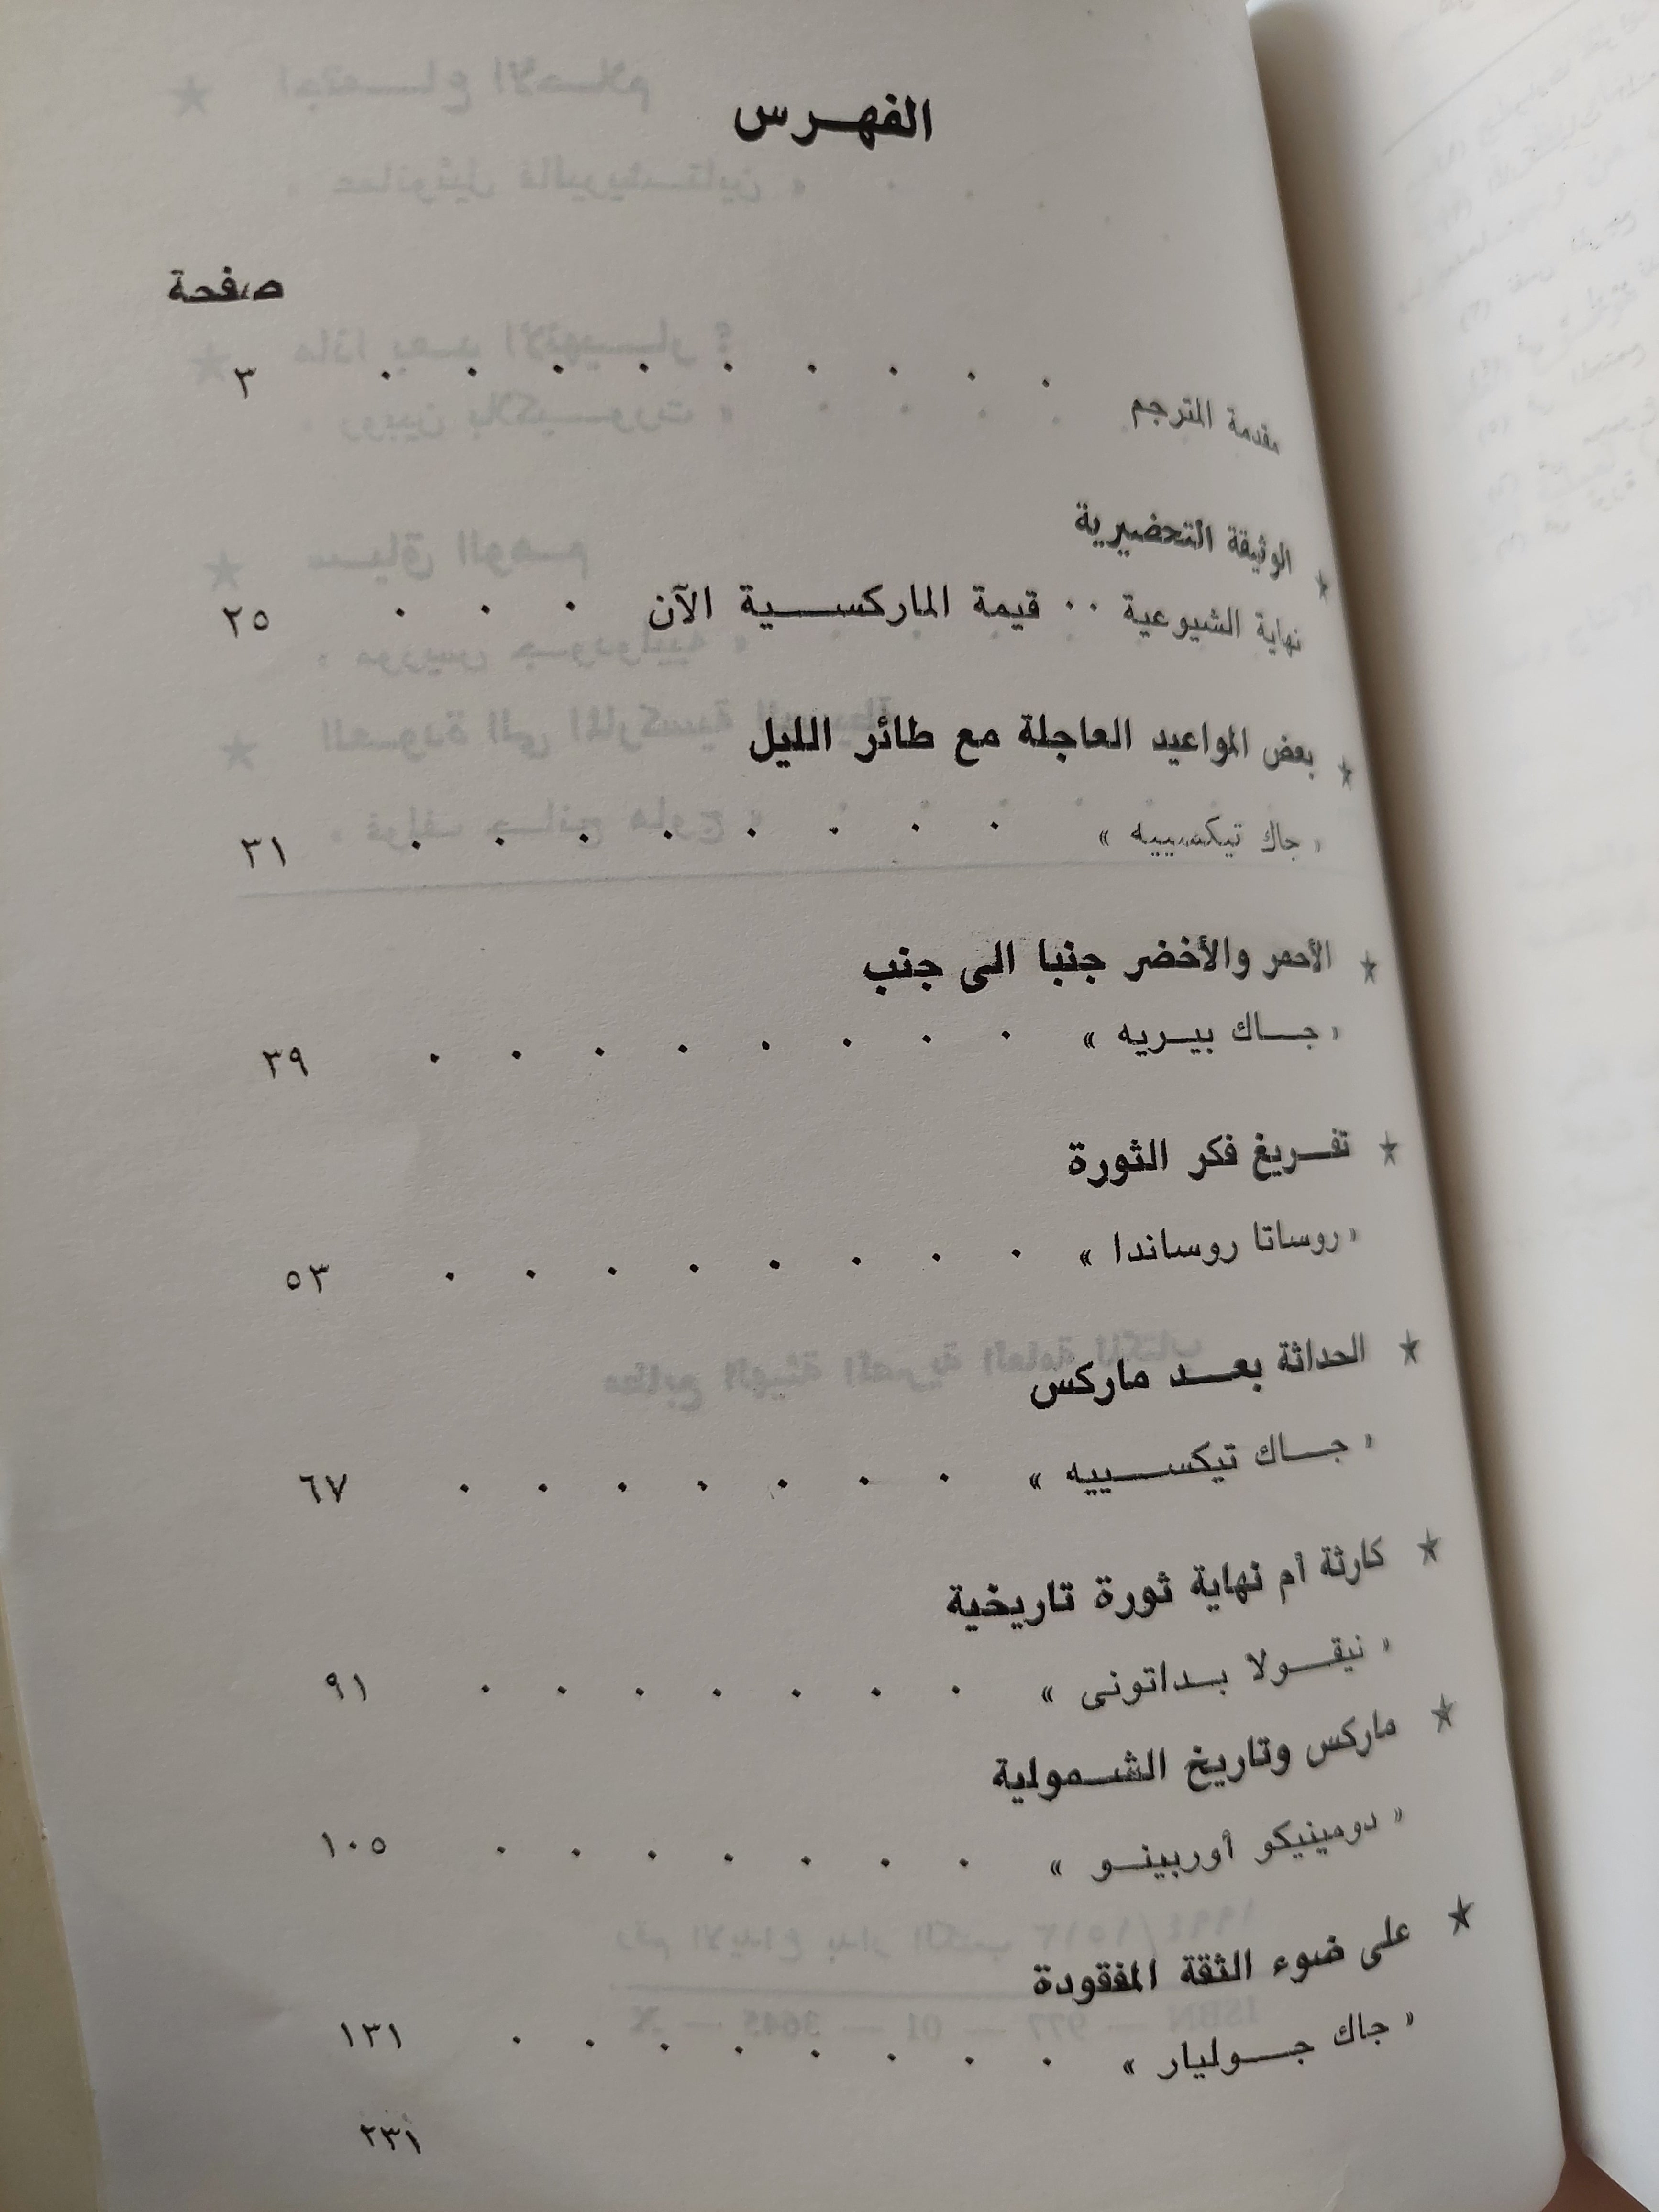 الفهرس
صفحة
مقدمة المترجم . . . . . . . . . ٣
★ الوثيقة التحضيرية
نهاية الشيوعية .. قيمة الماركسية الآن . . . ٢٥
★ بعض المواعيد العاجلة مع طائر الليل
« جاك تيكسييه » . . . . . . . . ٣١
★ الأحمر والأخضر جنبا الى جنب
« جاك بيريه » . . . . . . . . ٣٩
★ تفريغ فكر الثورة
« روسانا روساندا » . . . . . . . . ٥٣
★ الحداثة بعد ماركس
« جاك تيكسييه » . . . . . . . ٦٧
★ كارثة أم نهاية ثورة تاريخية
« نيقولا بداتونى » . . . . . . . ٩١
★ ماركس وتاريخ الشمولية
« دومينيكو أوربينو » . . . . . . . ١٠٥
★ على ضوء الثقة المفقودة
« جاك جوليار » . . . . . . . . ١٣١
٢٣١